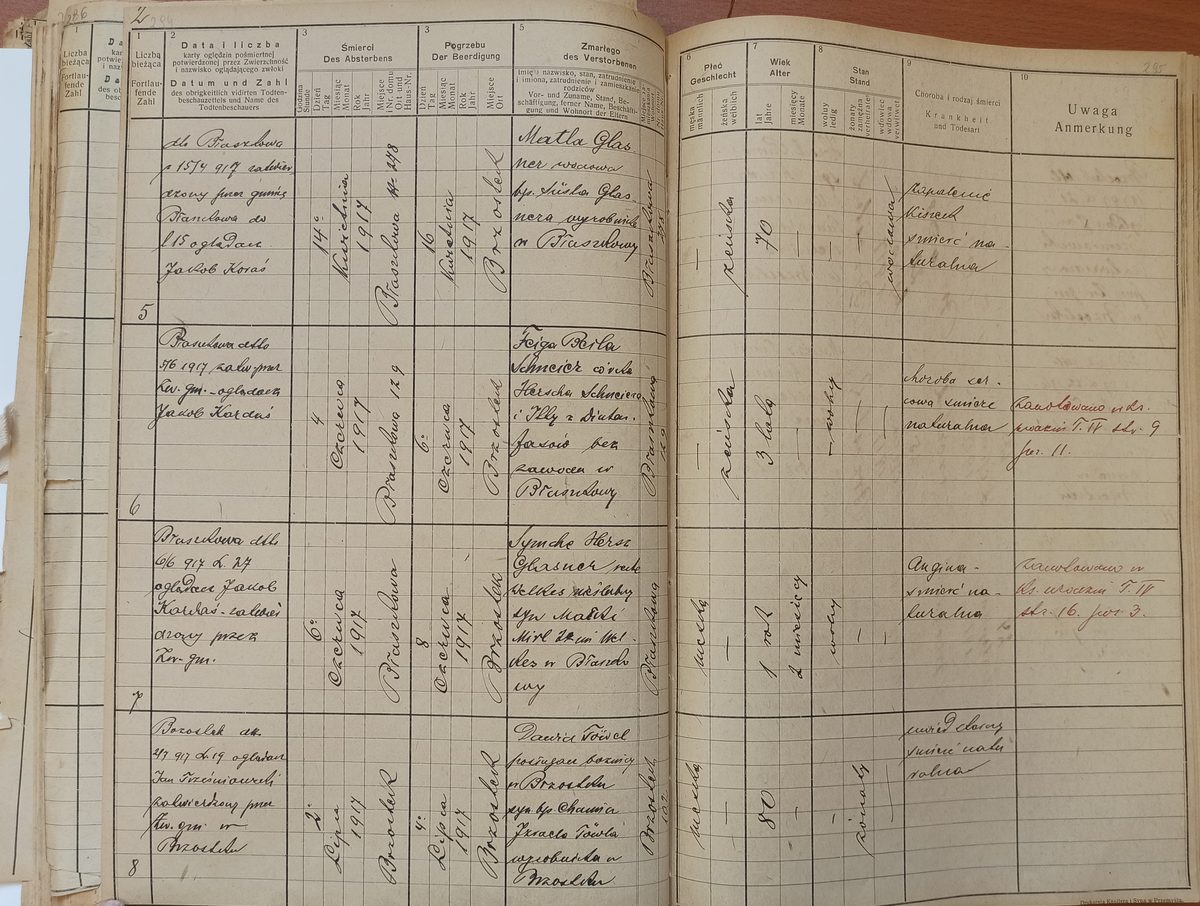 2
1
Liczba
bieżąca
Fortlau-
fende
Zahl
2
Data i liczba
karty oględzin pośmiertnej
potwierdzonej przez Zwierzchność
i nazwisko oglądającego zwłoki
Datum und Zahl
des obrigkeitlich vidirten Todten-
beschauzettels und Name des
Todtenbeschauers
3
Śmierci
Des Absterbens
Godzina
Stunde
Dzień
Tag
Miesiąc
Monat
Rok
Jahr
Miejsce
Nr. domu
Ort und
Haus-Nr.
3
Pogrzebu
Der Beerdigung
Dzień
Tag
Miesiąc
Monat
Rok
Jahr
Miejsce
Ort
5
Zmarłego
des Verstorbenen
Imię i nazwisko, stan, zatrudnienie
i imiona, zatrudnienie i zamieszkanie
rodziców
Vor- und Zuname, Stand, Be-
schäftigung, ferner Name, Beschäfti-
gung und Wohnort der Eltern
6
Płeć
Geschlecht
męska
männlich
żeńska
weiblich
7
Wiek
Alter
lat
Jahre
miesięcy
Monate
8
Stan
Stand
wolny
ledig
żonaty
zamężna
verheiratet
wdowiec
wdowa
verwitwet
9
Choroba i rodzaj śmierci
Krankheit
und Todesart
10
Uwaga
Anmerkung
295
5
dto Błaszkowa
z 15/4 917 zatwier
dzony przez gminę
Błaszkowa do
l 15 oglądacz
Jakób Karaś
14.
Kwietnia
1917
Błaszkowa № 278
16
Kwietnia
1917
Brzostek
Matla Glas
ner wdowa
bp. Süsla Glas-
nera wyrobnika
w Błaszkowy
Błaszkowa
278
—
żeńska
70
—
—
—
wdowa
zapalenie
kiszek
śmierć na-
turalna
6
Błaszkowa dtto
5/6 1917 zatw. przez
Zw. gm. - oglądacz
Jakób Kardaś
4
Czerwca
1917
Błaszkowa 129
6.
Czerwca
1917
Brzostek
Feiga Beila
Schneier córka
Herscha Schneiera
i
bez
zawodu w
Błaszkowy
Błaszkowa
129
—
żeńska
3 lata
—
wolny
—
—
choroba ser-
cowa śmierć
naturalna
zanotowano w ks.
urodzin T. IV str. 9
poz. 11.
7
Błaszkowa dtto
6/6 917 L. 27
oglądacz Jakób
Kardaś - zatwier
dzony przez
Zw. gm.
6.
Czerwca
1917
Błaszkowa
8
Czerwca
1917
Brzostek
Symche Hersz
Glasner recte
Welkes nieślubny
syn Matki
Mirl Wel-
kes w Błaszko
wy
Błaszkowa
męska
—
1 rok
2 miesięcy
wolny
—
—
Angina -
śmierć na-
turalna
zanotowano w
Ks. urodzin T. IV
str. 16. poz. 3.
8
Brzostek dto
2/7 917 L. 19 oglądacz
Jan
zatwierdzony przez
Zw. gm. w
Brzostku
2.
Lipca
1917
Brzostek
4.
Lipca
1917
Brzostek
Dawid Töwel
posługacz bożnicy
w Brzostku
syn bp. Chaima
Izraela Töwla
wyrobnika w
Brzostku
Brzostek
102
męska
—
80
—
—
żonaty
—
uwiąd starczy
śmierć natu
ralna
Drukarnia Knollera i Syna w Przemyślu.